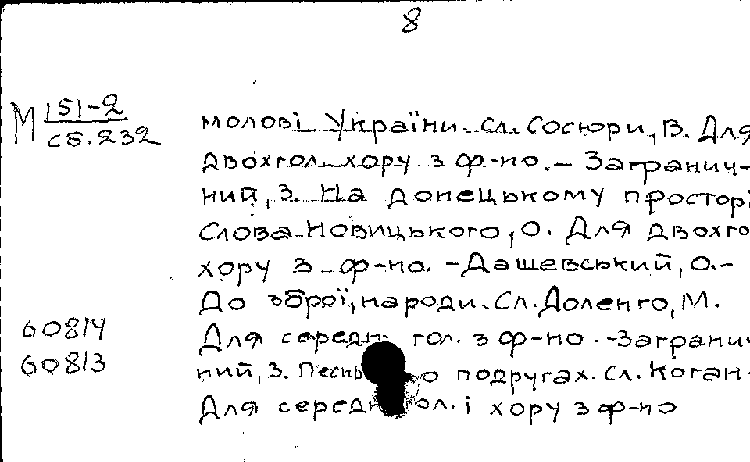 8
М 151-2
сб.232
молові України. Сл. Сосюри, В. Для
двохгол. хору з ф-но. – Загранич-
ний, З. На Донецькому просторі
Слова Новицького, О. Для двохго
хору з ф-но. – Дашевський, О. –
До зброї, народи. Сл. Доленго, М.
60814
Для середн гол. з ф-но. – Заграни
60813
ний, З. о подругах. Сл. Коган
Для серед ол. і хору з ф-но